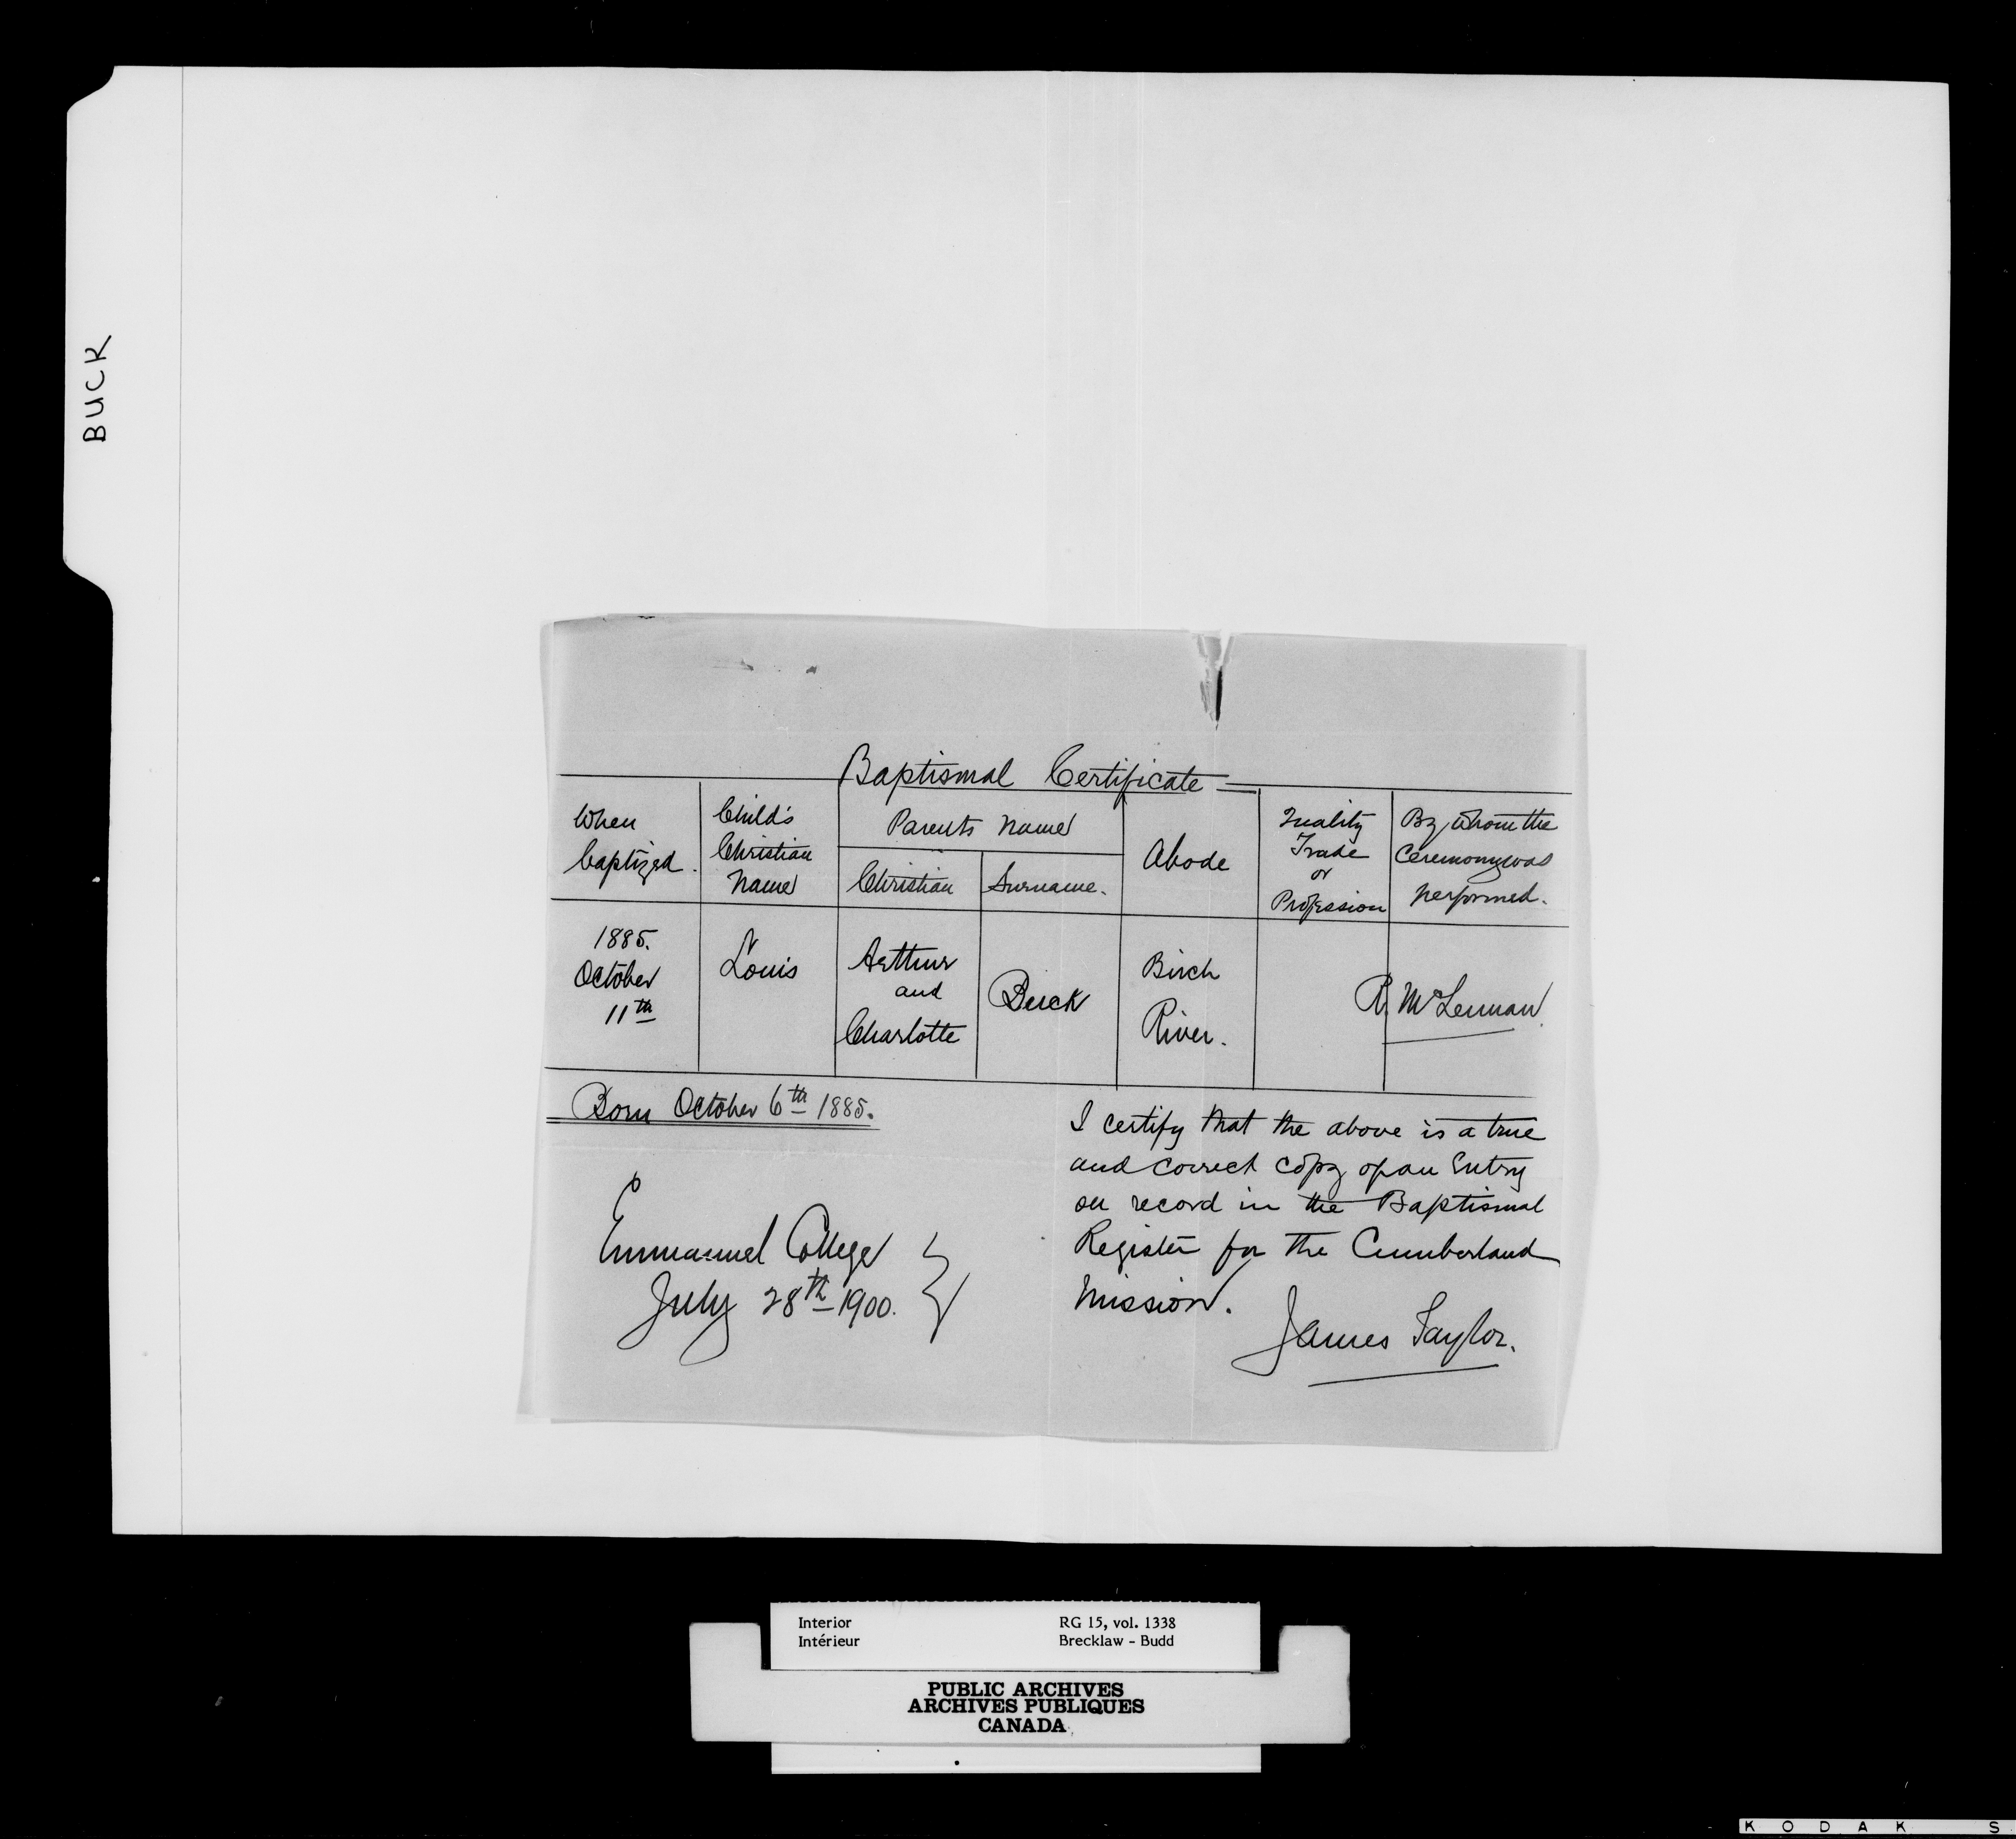 BUCK
Baptismal Certificate
When baptized.
Child's Christian Name
Parents Name
Christian
Surname.
Abode
Quality Trade or Profession
By whom the Ceremony was performed.
1885.
October
11th
Louis
Arthur
and
Charlotte
Buck
Birch
River.
R. McLennan.
Born October 6th 1885.
I certify that the above is a true
and correct copy of an Entry
on record in the Baptismal
Register for the Cumberland
Mission.
James Taylor.
Emmanuel College
July 28th 1900.
Interior RG 15, vol. 1338
Intérieur Brecklaw - Budd
PUBLIC ARCHIVES
ARCHIVES PUBLIQUES
CANADA
KODAK S